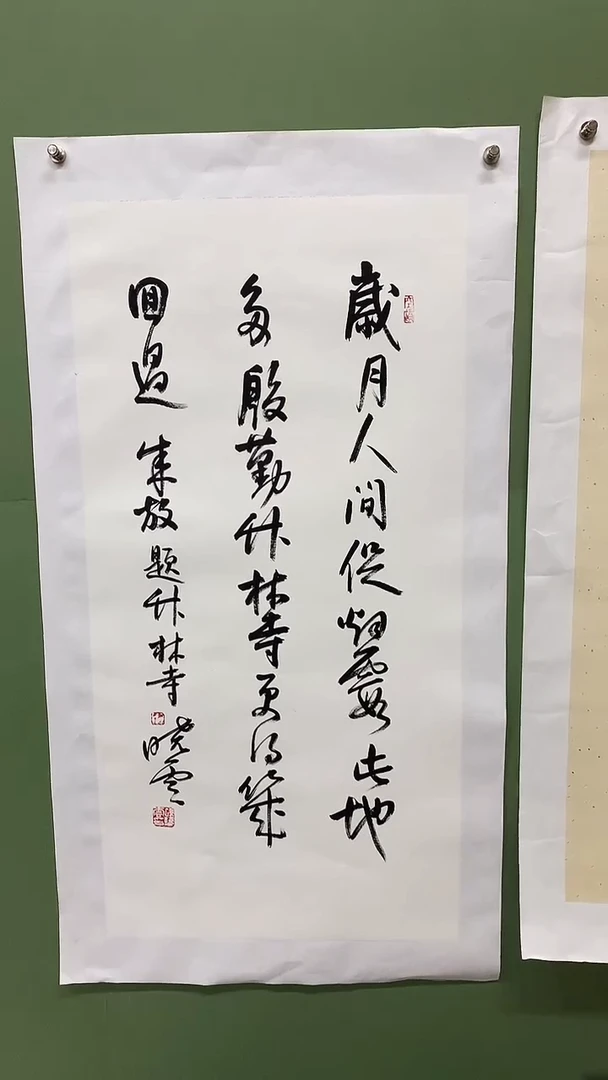 歲月人间促烟霞此地
多殷勤竹林寺更得幾
回過 朱放题竹林寺 晓雲